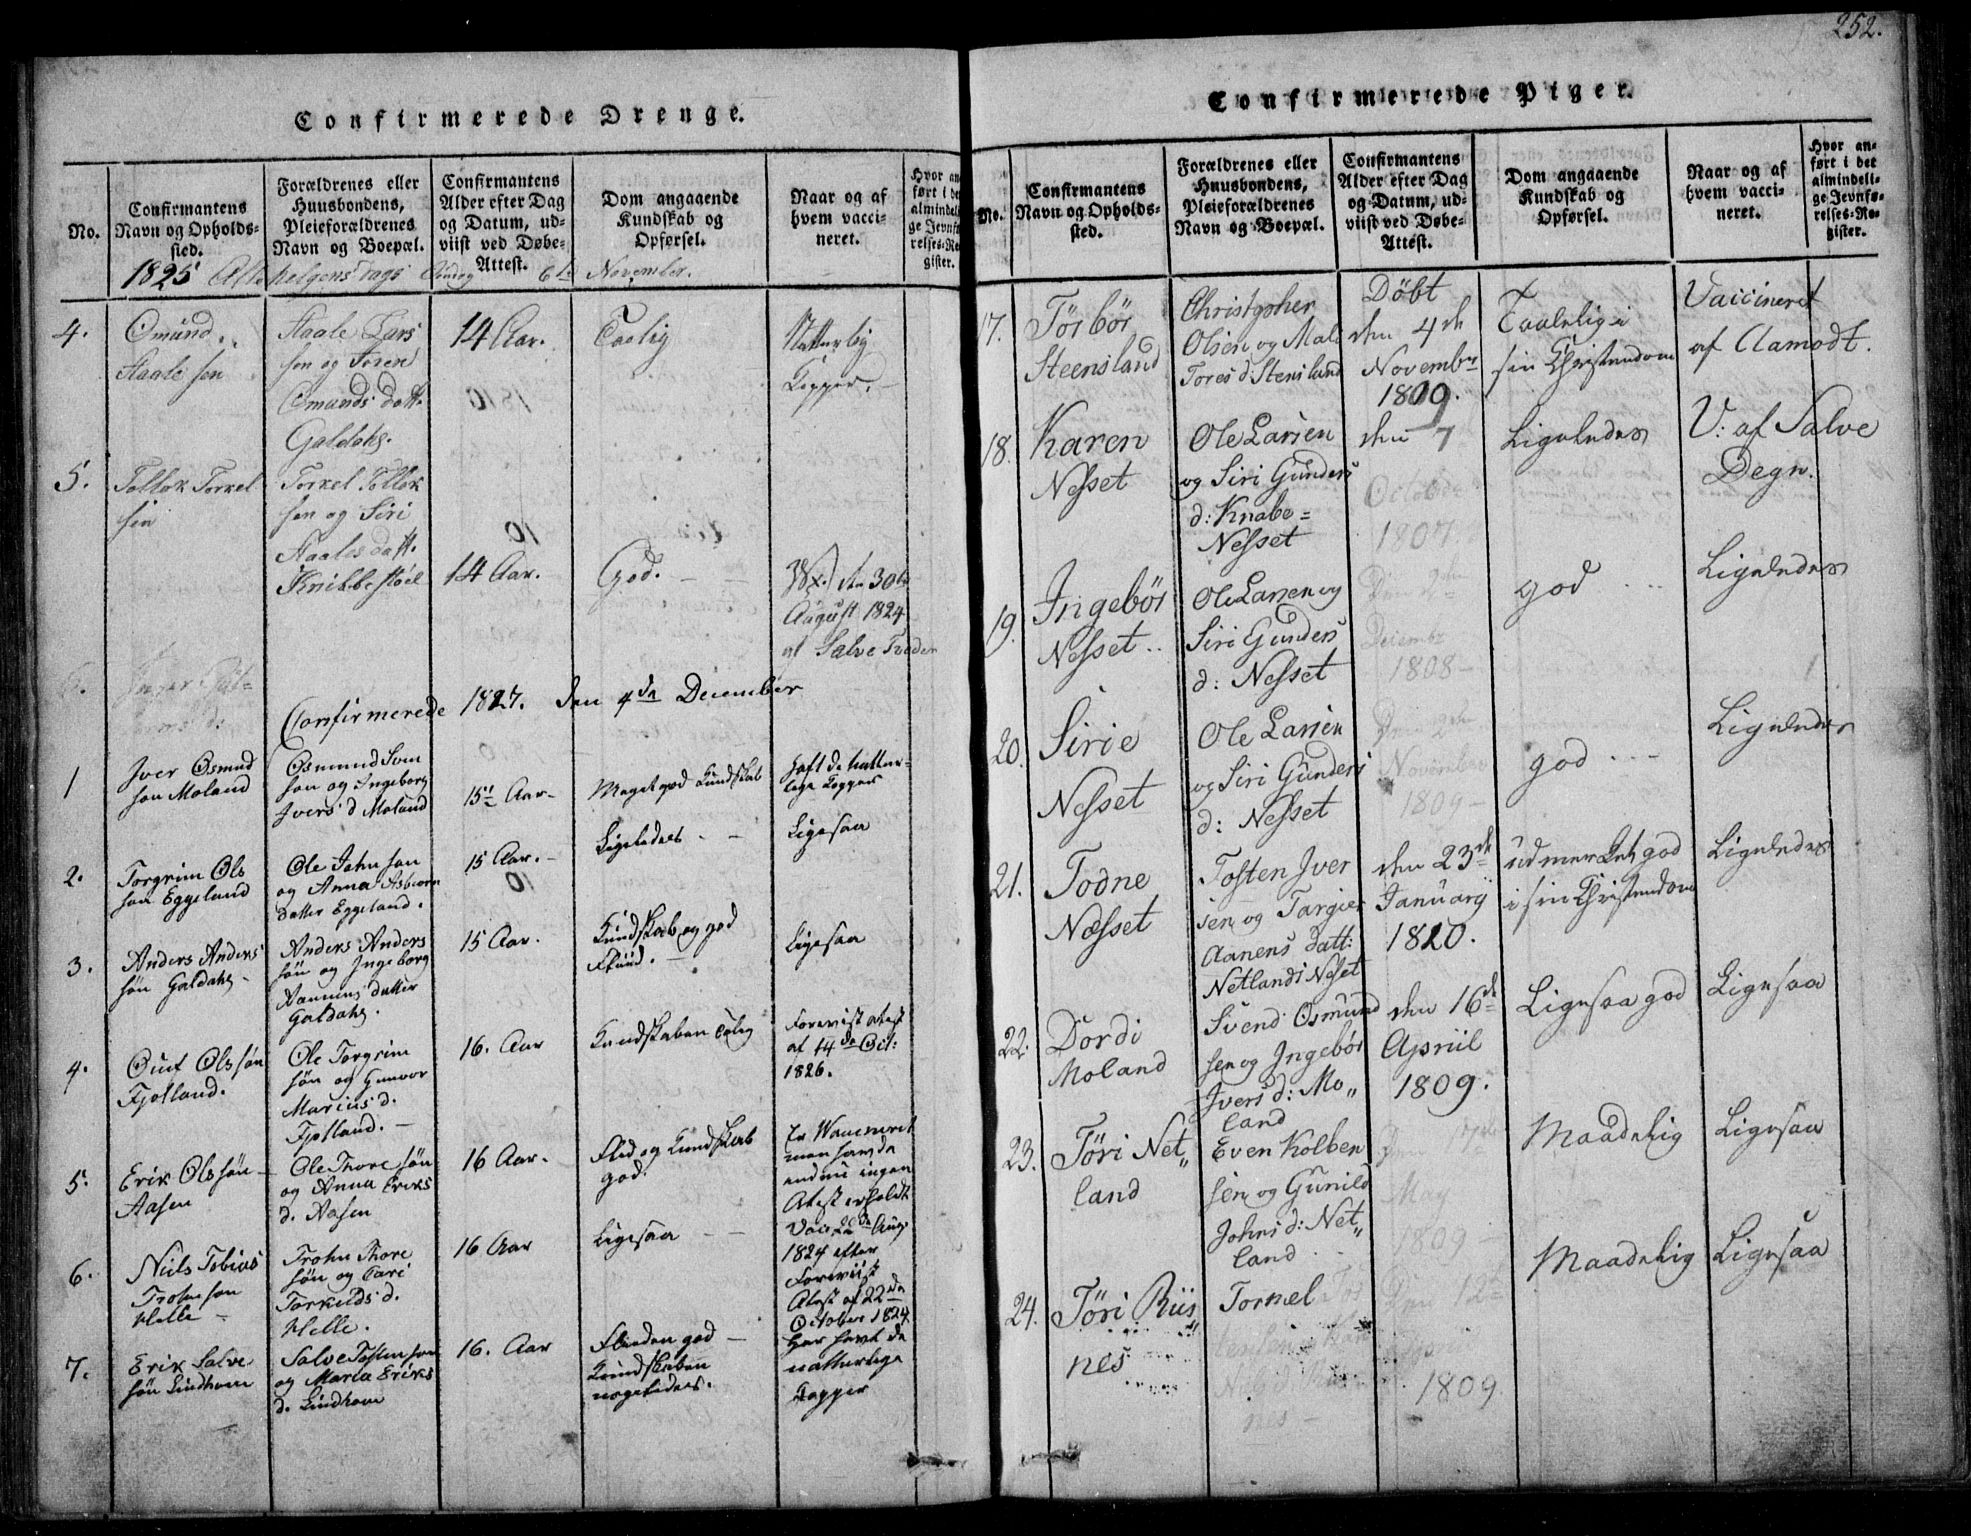 252.
Confirmerede Drenge.
No.
Confirmantens Navn og Opholds-sted.
Forældrenes eller Huusbondens, Pleieforældrenes Navn og Boepæl.
Confirmantens Alder efter Dag og Datum, ud-viist ved Døbe-Attest.
Dom angaaende Kundskab og Opførsel.
Naar og af hvem vacci-neret.
1825 Alle helgens Dags 6te November.
4.
Omund
Staale sen
Staale Lars
sen og Toren
Omunds datt.
Galdahs.
14 Aar.
Taalig
Natturlig
Kopper.
5.
Tollok Torkel
sen
Torkel Tollok
sen og Siri
Staales datt.
Knibbestøel
14 Aar.
God.
den 30te
August 1824
af Salve Tveden
Confirmerede 1827. den 4de December
1
Iver Osmund
søn Moland
Osmund Sven
søn og Ingeborg
Ivers d Moland
15 Aar-
Meget god Kundskab
haft de nattur-
lige Kopper
2.
Torgrim Ols
søn Eggeland
Ole John søn
og Anna Asbiorn
datter Eggeland.
15 Aar.-
Ligeledes - -
Ligesaa
3.
Anders Anders
søn Galdahs
Anders Anders
søn og Ingeborg
Aanens datter
Galdahs.
15 Aar.
Kundskab og god
Fliid. -
Ligesaa
4.
Ouf Ols søn
Fjotland.
Ole Torgrim
søn og Gunvor
Marius d.
Fjotland. -
16. Aar
Kundskaben taalig
Foreviist Atest
af 14de Oct:
1826.
5.
Erik Ols søn
Aasen
Ole Thore søn
og Anna Eriks
d. Aasen
16 Aar.
Flid og Kundskab
god.
Er Vaccineret
men havde
endnu ingen
Atest erholdt
6.
Niels Tobias
Trohn søn
Helle
Trohn Thore
søn og Tari
Torkilds d.
Helle.
16 Aar
Ligesaa - -
Vacc 22de Aug.
1824 efter
Foreviist
Atest af 22de
October 1824.
7.
Erik Salve
søn Lindhom
Salve Tosten søn
og Maria Eriks
d. Lindhom
16. Aar
Fliden god -
Kundskaben
nogeledes.
Har havt de
natturlige
Kopper
Confirmerede Piger.
No.
Confirmantens Navn og Opholds-sted.
Forældrenes eller Huusbondens, Pleieforældrenes Navn og Boepæl.
Confirmantens Alder efter Dag og Datum, ud-viist ved Døbe-Attest.
Dom angaaende Kundskab og Opførsel.
Naar og af hvem vacci-neret.
Hvor an-ført i det almindeli-ge Jevnfø-relses-Re-gister.
17.
Tørbør
Steensland
Christopher
Olsen og Male
Tores d: Stensland
Døbt
den 4de
Novembr
1809.
Taalelig i
sin Christendom
Vaccineret
af Aamodt.
18.
Karen
Nesset
Ole Larsen
og Siri Gunders
d: Knabe=
Nesset
den 7
October
1807.
Ligeledes
V: af Salve
Degn.
19.
Ingebør
Nesset
Ole Larsen og
Siri Gunders
d: Nesset
Den 2den
Decembr
1808 -
god
Ligeledes
20.
Sirie
Nesset
Ole Larsen
og Siri Gunders
d: Nesset
Den 2den
November
1809 -
god
Ligeledes
21.
Todne
Næsset
Tosten Iver
sen og Targier
Aanens Datt:
Netlands Nesset
den 23de
Januarij
1810.
udmerket god
i sin Christendom
Ligeledes
22.
Dordi
Moland
Svend Osmund
sen og Ingebør
Ivers d: Mo„
land
den 16de
Apriil
1809.
Ligesaa god
Ligesaa
23.
Tøri Net„
land
Even Kolben
sen og Gunild
Johns d: Net„
land
May
1809 -
Maadelig
Ligesaa
24.
Tøri Riis„
nes
Tormel
Den 12te
1809
Maadelig
Ligesaa